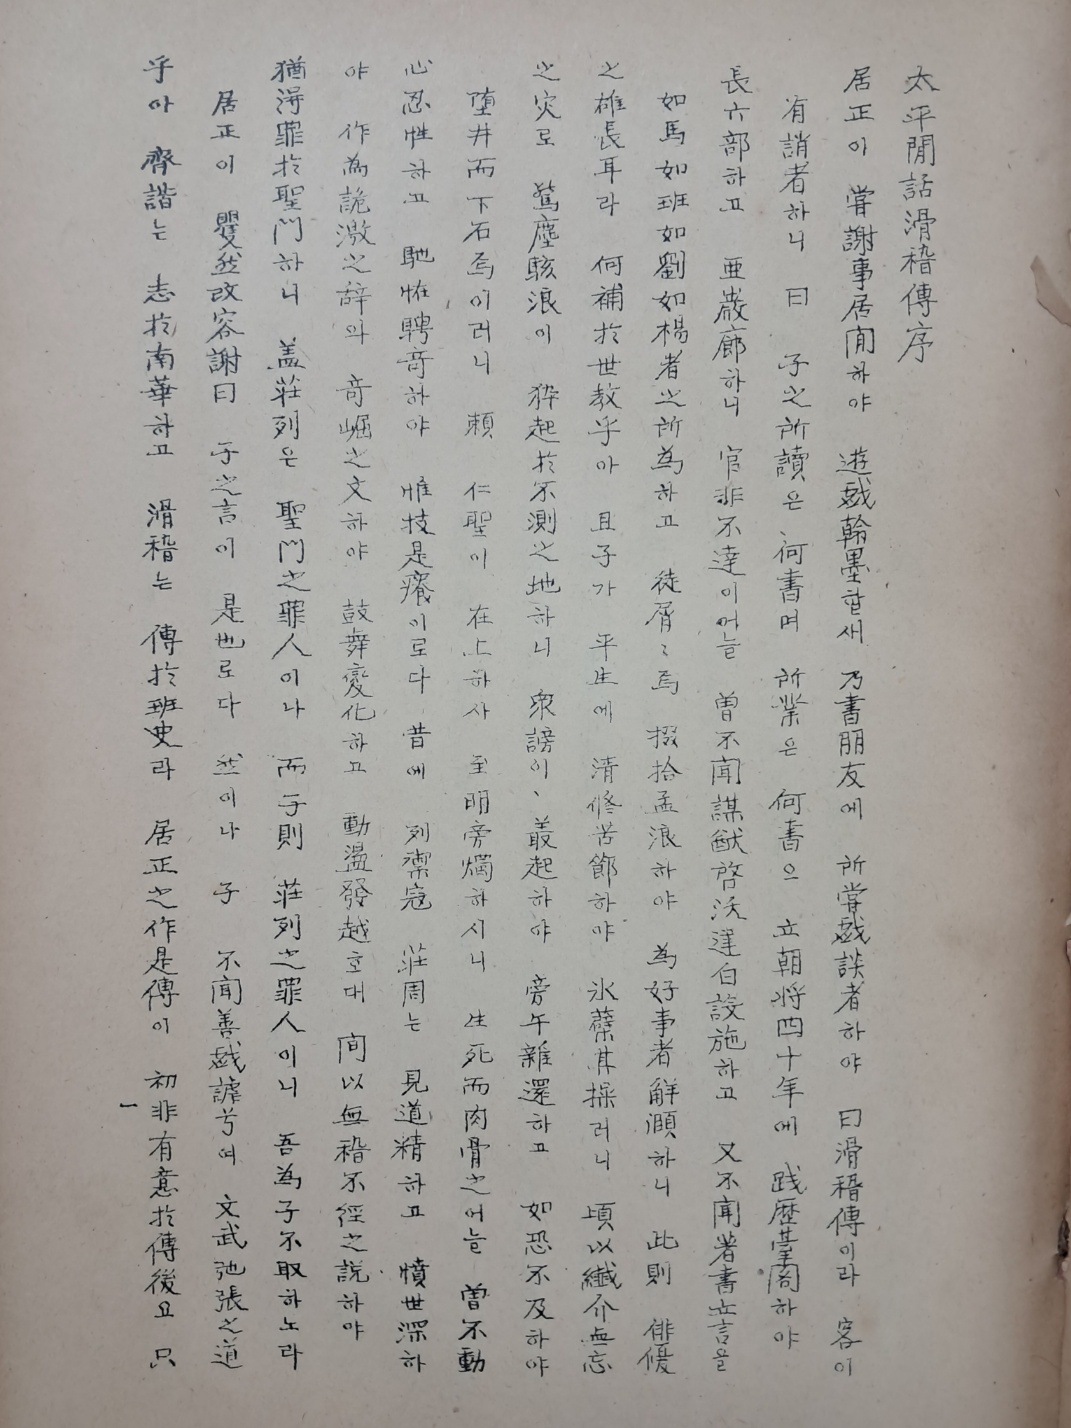 太平閒話滑稽傳序
居正이 嘗謝事居閒하야 遊戱翰墨할새 乃書朋友에 所嘗戱談者하야 曰滑稽傳이라 客이
有誚者하니 曰 子之所讀은 何書며 所業은 何書으 立朝將四十年에 踐歷臺閣하야
長六部하고 亜巖廊하니 官非不達이어늘 曾不聞謀猷啓沃建白設施하고 又不聞著書立言을
如馬如班如劉如楊者之所為하고 徒屑〻焉 掇拾孟浪하야 為好事者解頤하니 此則 俳優
之雄長耳라 何補於世教乎아 且子가 平生에 清修苦節하야 氷蘗其操러니 頃以纖介無忘
之灾로 驚塵駭浪이 猝起於不測之地하니 衆謗이、叢起하야 旁午雜還하고 如恐不及하야
堕井而下石焉이러니 頼 仁聖이 在上하사 至明旁燭하시니 生死而肉骨之어늘 曽不動
心忍性하고 馳恠騁奇하야 惟技是癢이로다 昔에 列禦寇 莊周는 見道精하고 憤世深하
야 作為詭激之辞와 奇崛之文하야 鼓舞変化하고 動盪發越호대 間以無稽不徑之説하야
猶淂罪於聖門하니 盖莊列은 聖門之罪人이나 而子則 莊列之罪人이니 吾為子不取하노라
居正이 矍然改容謝曰 子之言이 是也로다 然이나 子 不聞善戱謔兮여 文武弛張之道
乎아 齊諧는 志於南華하고 滑稽는 傳於班史라 居正之作是傳이 初非有意於傳後요 只
一